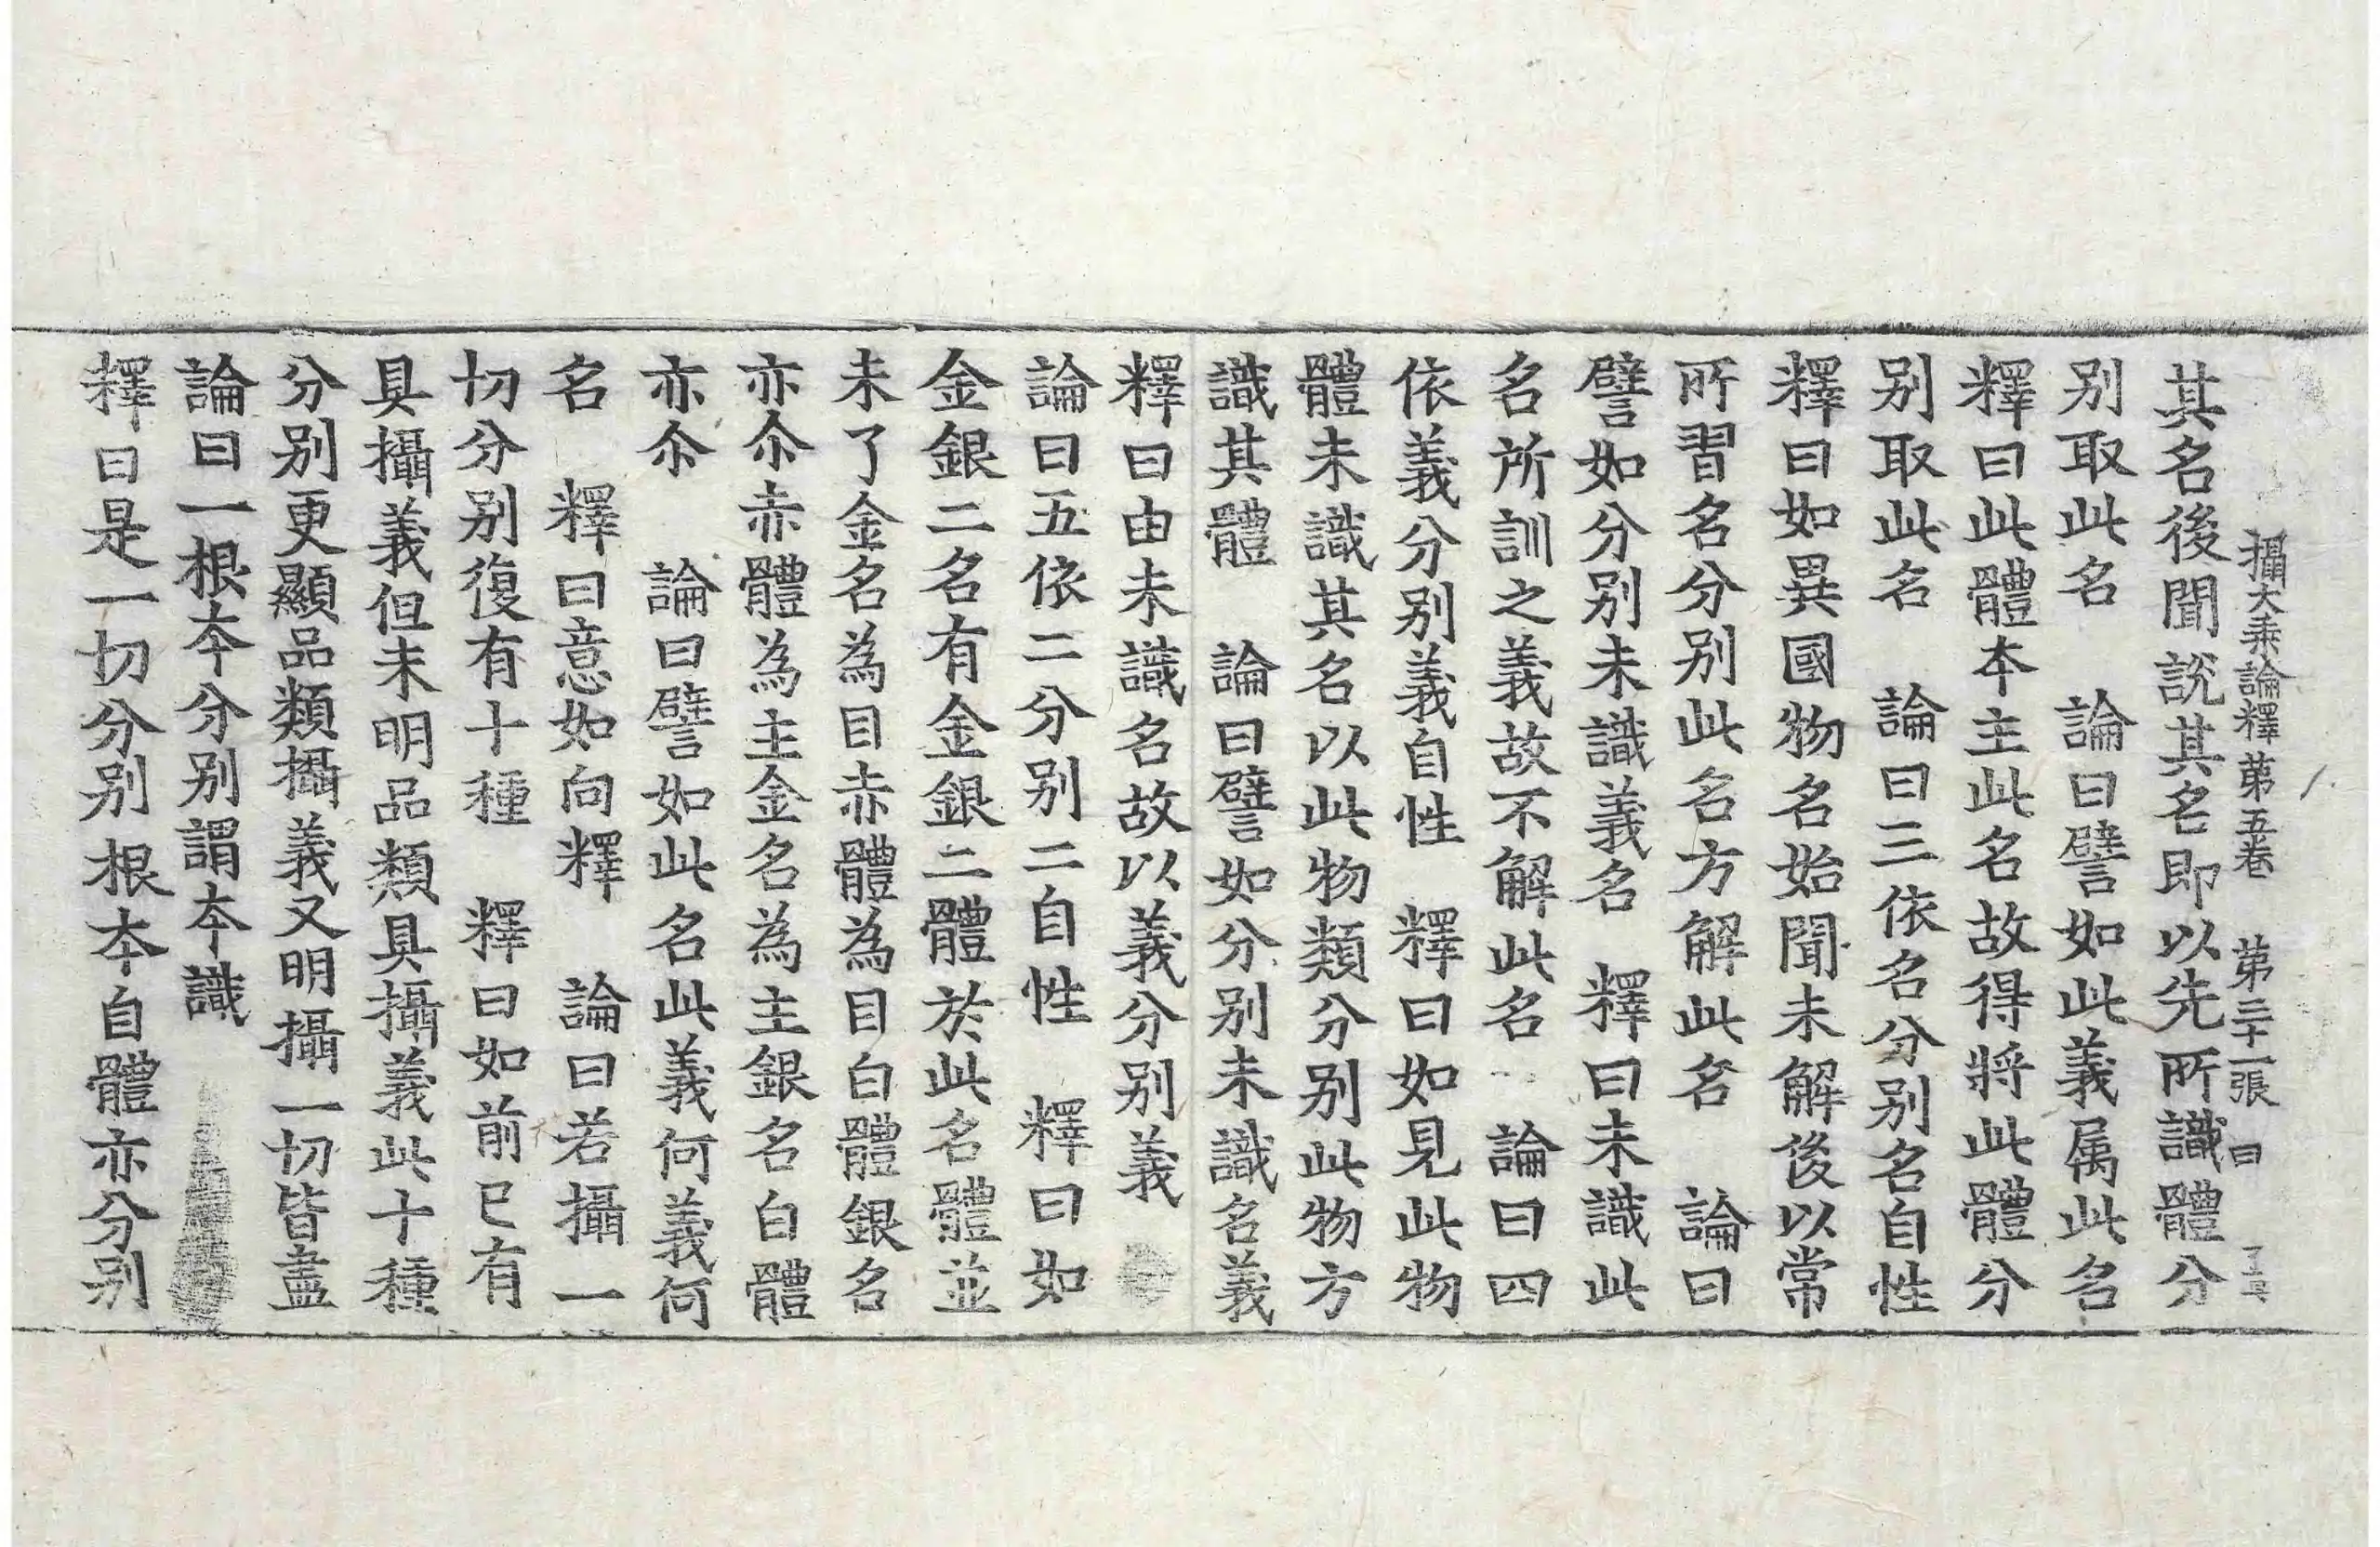 攝大乘論釋第五卷 第二十一張 曰
其名後聞說其名即以先所識體分
别取此名 論曰譬如此義属此名
釋曰此體本主此名故得將此體分
别取此名 論曰三依名分别名自性
釋曰如異國物名始聞未解後以常
所習名分别此名方解此名 論曰
譬如分别未識義名 釋曰未識此
名所訓之義故不解此名 論曰四
依義分别義自性 釋曰如見此物
體未識其名以此物類分别此物方
識其體 論曰譬如分别未識名義
釋曰由未識名故以義分别義
論曰五依二分别二自性 釋曰如
金銀二名有金銀二體於此名體並
未了金名為目赤體為目白體銀名
亦尒赤體為主金名為主銀名白體
亦尒 論曰譬如此名此義何義何
名 釋曰意如向釋 論曰若攝一
切分别復有十種 釋曰如前已有
具攝義但未明品類具攝義此十種
分别更顯品類攝義又明攝一切皆盡
論曰一根本分别謂本識
釋曰是一切分别根本自體亦分别